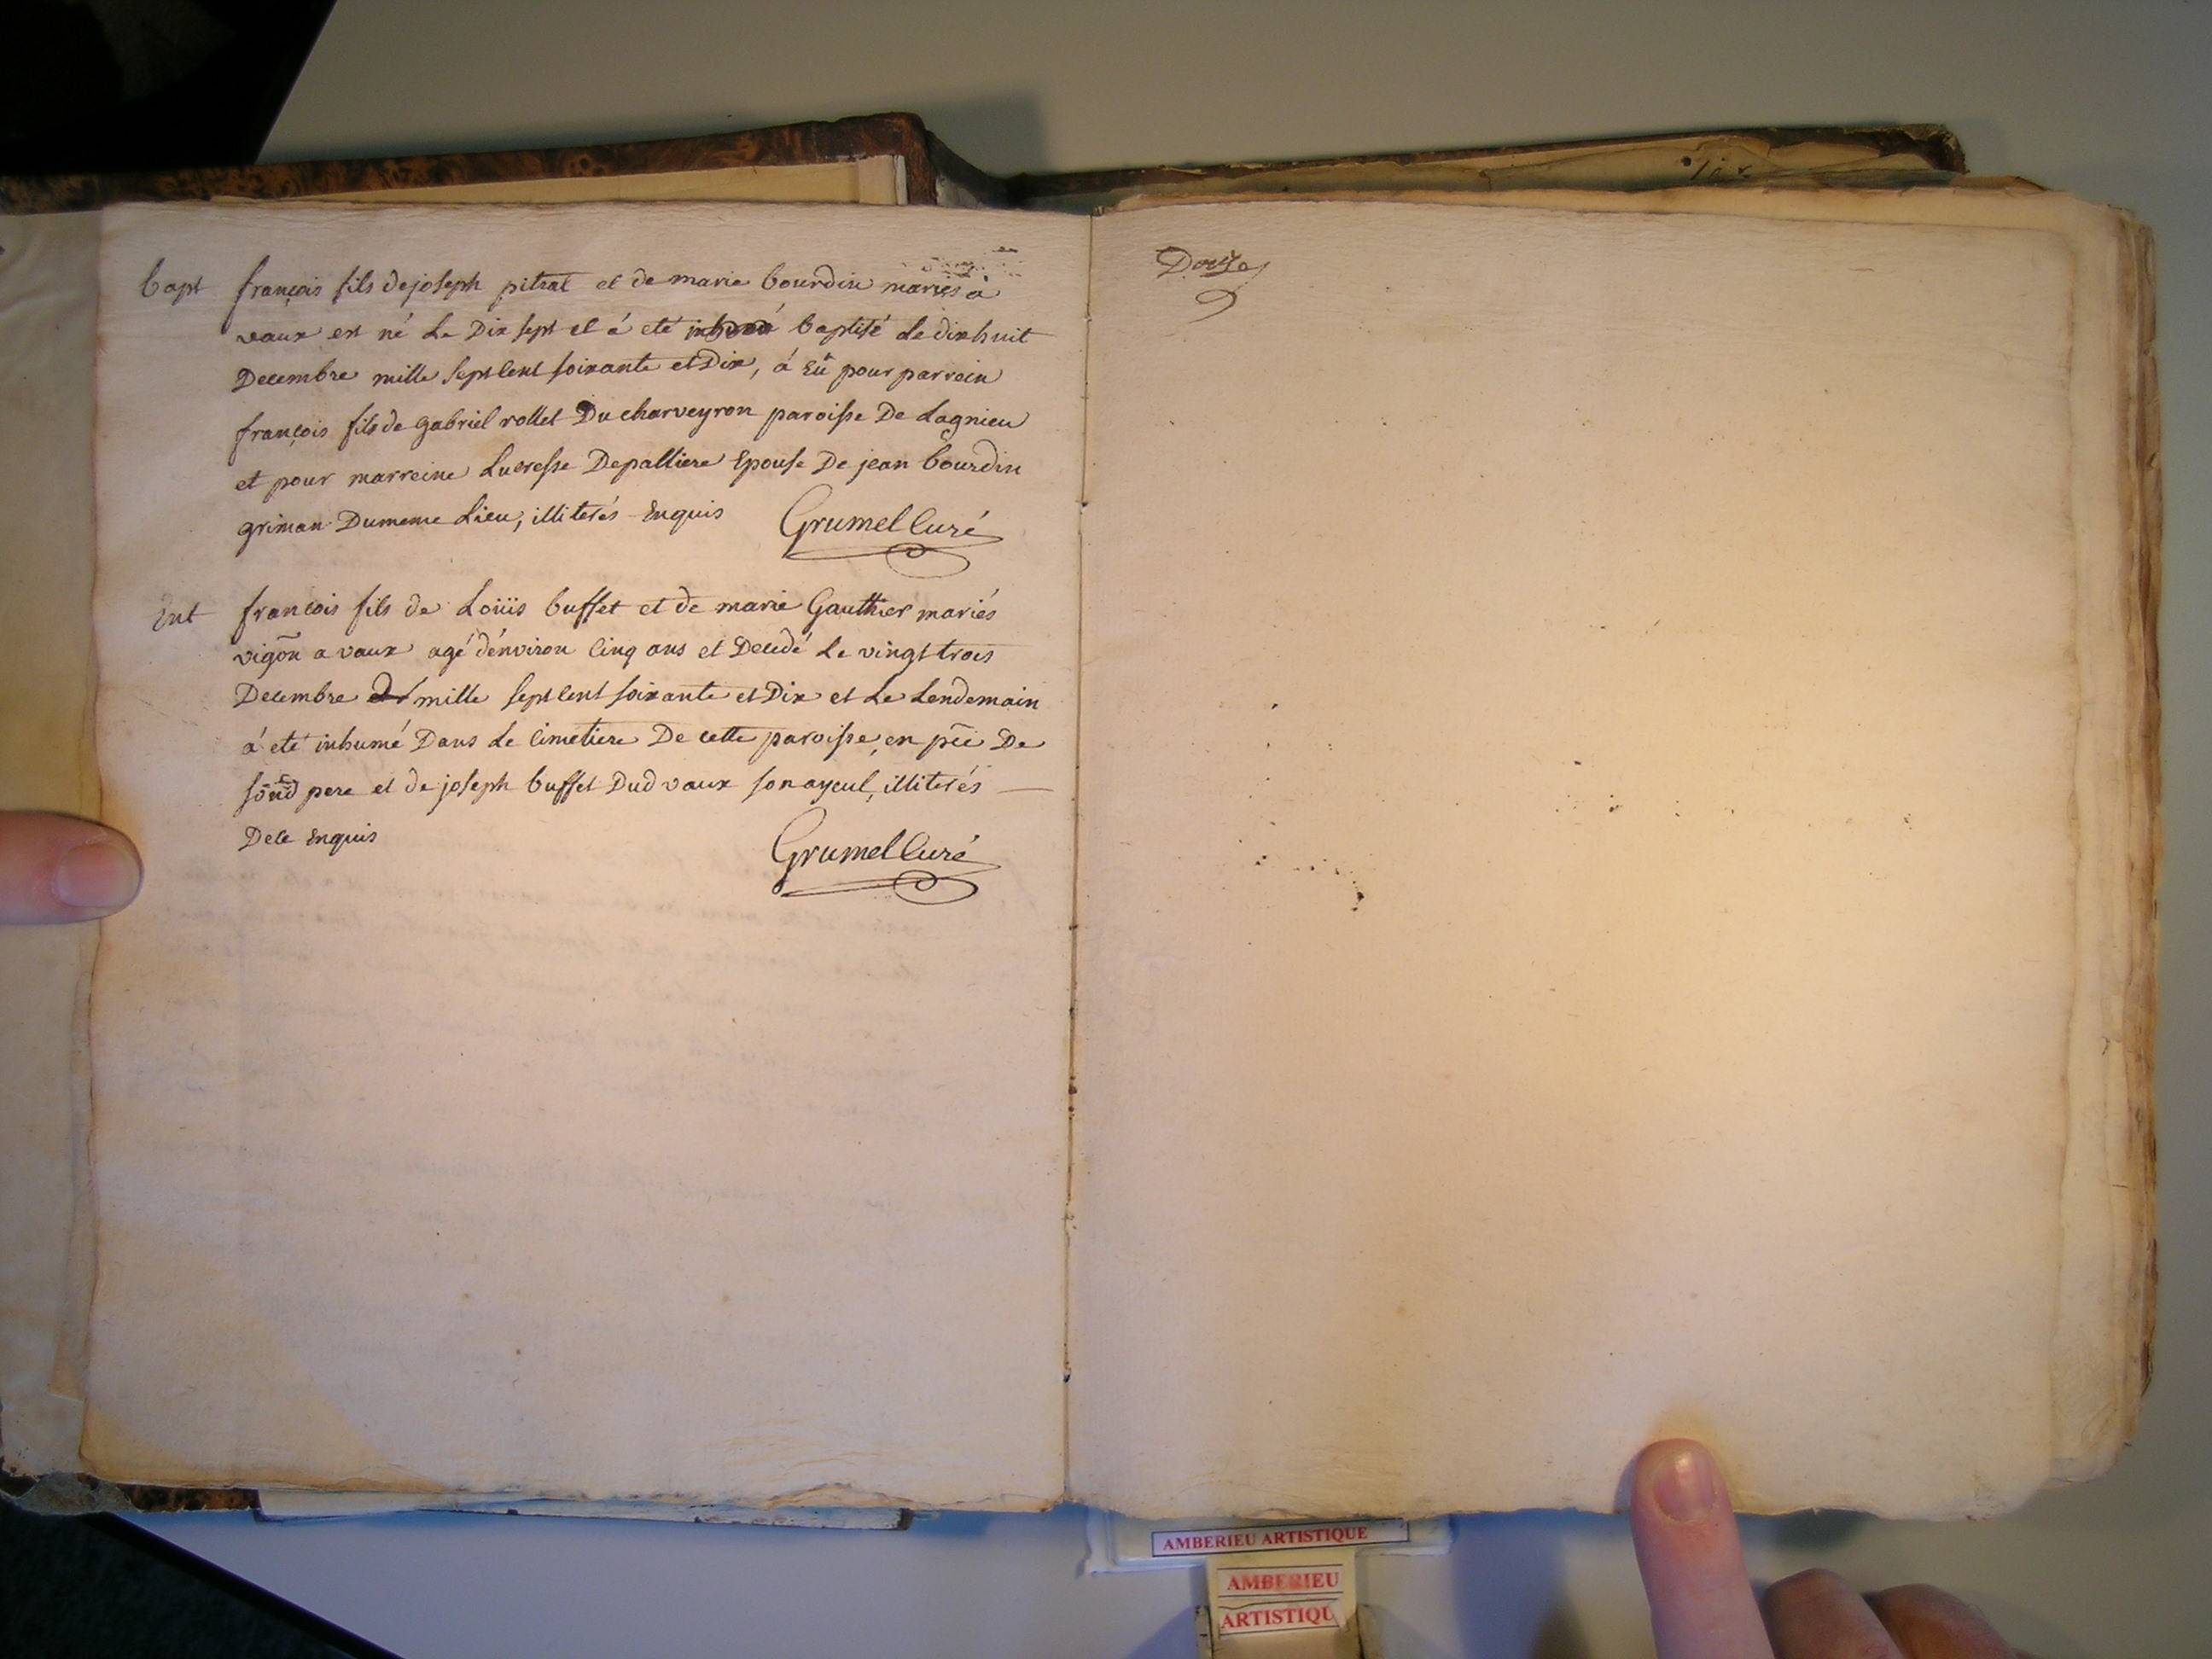 bapt françois fils de joseph pitrat et de marie bourdin mariés à
vaux est né Le Dix sept et á eté inhumé baptisé Le dixhuit
Decembre mille sept cent soixante et Dix, á Eû pour parrein
françois fils de gabriel rollet Du charveyron paroisse De Lagnieu
et pour marreine Lucresse Depalliere Epouse De jean bourdin
griman Dumeme Lieu, illiterés Enquis Grumel Curé
Ent françois fils de Loüis buffet et de marie Gauthier mariés
vigõn a vaux agé d'énviron cinq ans et Decedé Le vingt trois
Decembre mille sept cent soixante et Dix et Le Lendemain
á eté inhumé Dans Le cimetiere De cette paroisse, en pñce De
sond pere et de joseph buffet Dud vaux son ayeul, illiterés
Dece Enquis
Grumel Curé
Douze
AMBERIEU ARTISTIQUE
AMBERIEU
ARTISTIQU